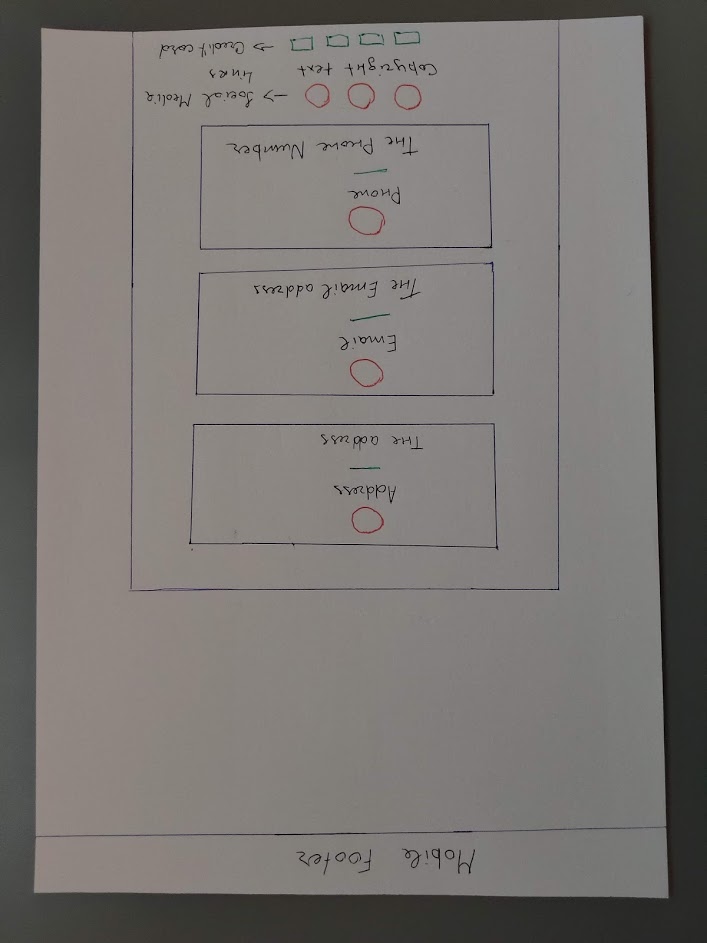 Mobile Footer
Address
The address
Email
The Email address
Phone
The Phone Number
→ Social Media
Links
Copyright text
→ Credit card